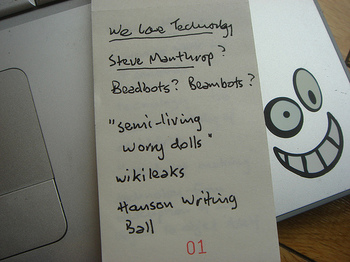 We Love Technology
Steve Manthrop?
Beadbots? Beambots?
"semi-living
worry dolls"
wikileaks
Hanson Writing
Ball
01